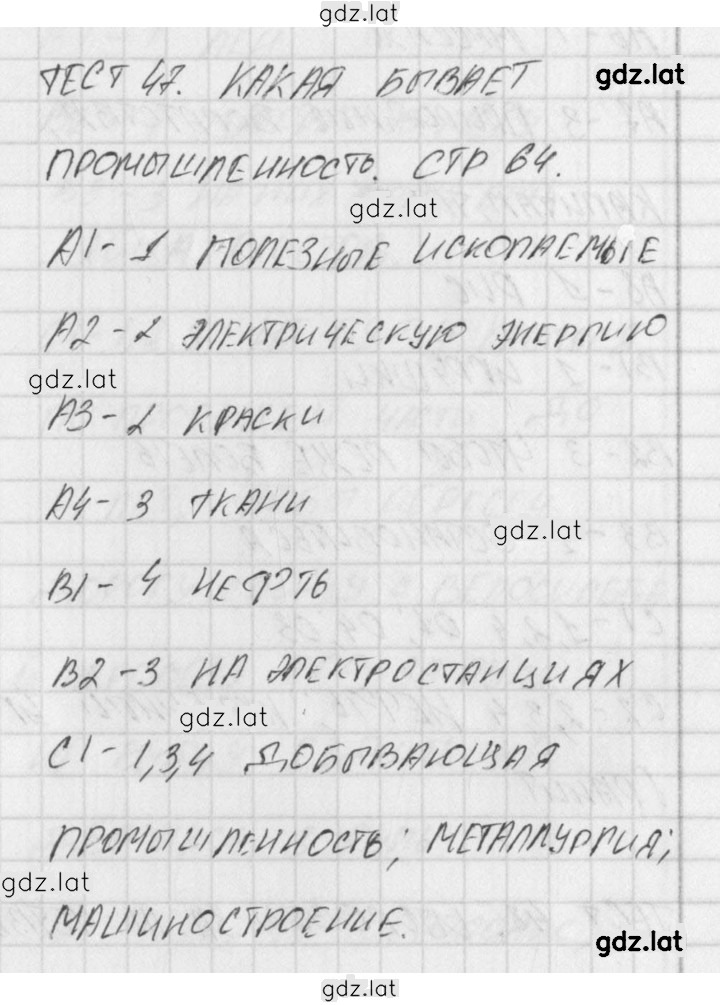 gdz.lat
ТЕСТ 47. КАКАЯ БЫВАЕТ
gdz.lat
ПРОМЫШЛЕННОСТЬ. СТР 64.
gdz.lat
А1-1 ПОЛЕЗНЫЕ ИСКОПАЕМЫЕ
А2-2 ЭЛЕКТРИЧЕСКУЮ ЭНЕРГИЮ
gdz.lat
А3-2 КРАСКИ
А4-3 ТКАНИ
gdz.lat
В1-4 НЕФТЬ
В2-3 НА ЭЛЕКТРОСТАНЦИЯХ
gdz.lat
С1-1,3,4 ДОБЫВАЮЩАЯ
ПРОМЫШЛЕННОСТЬ; МЕТАЛЛУРГИЯ;
gdz.lat
МАШИНОСТРОЕНИЕ.
gdz.lat
gdz.lat